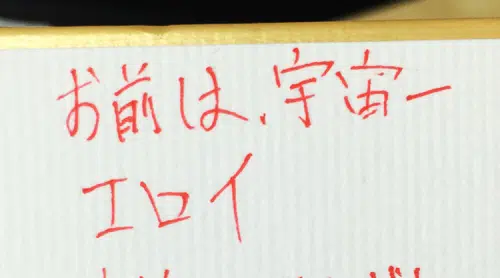 お前は、宇宙一
エロイ